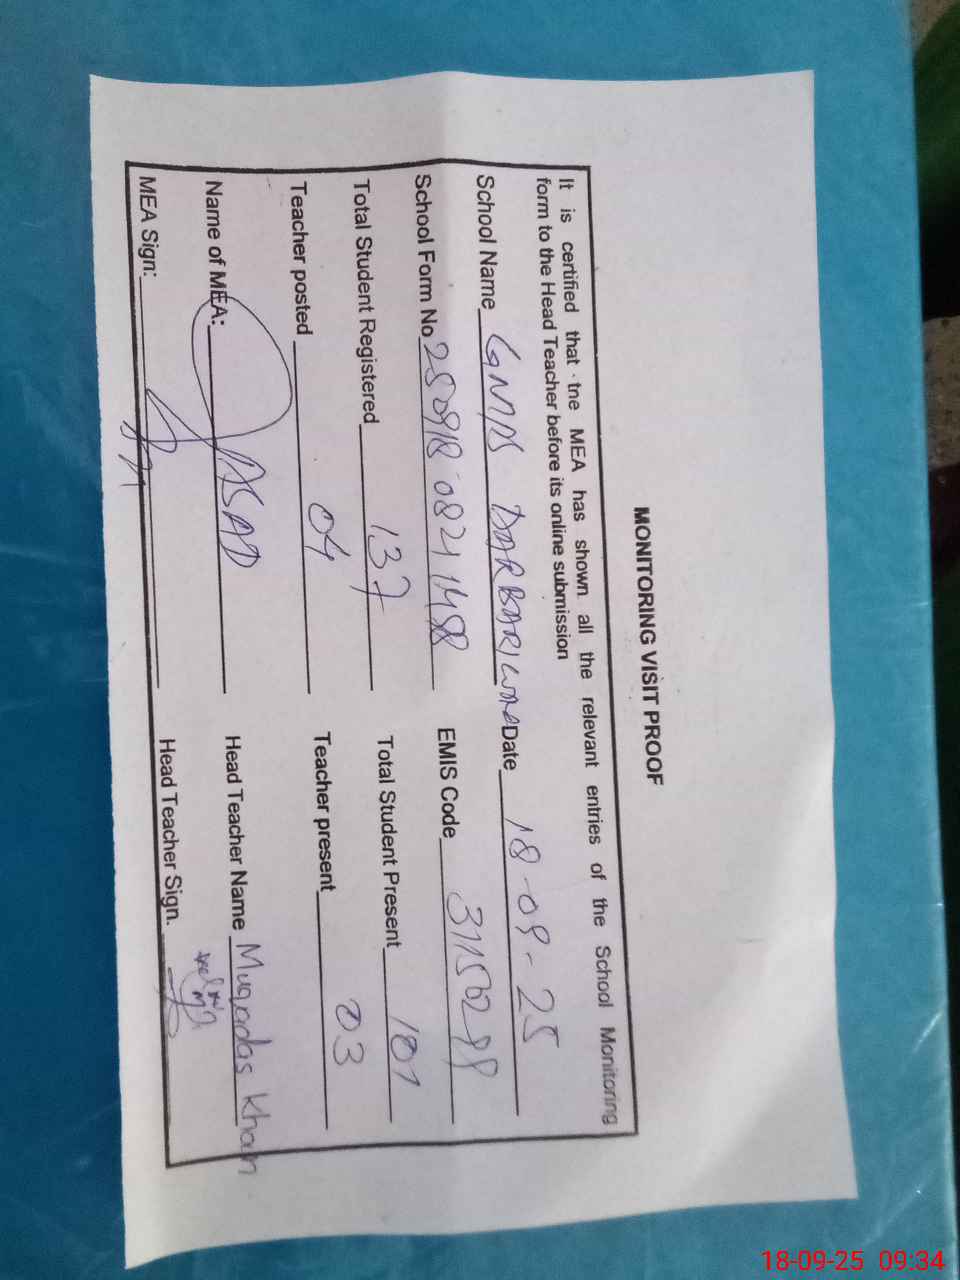 MONITORING VISIT PROOF
It is certified that the MEA has shown all the relevant entries of the School Monitoring
form to the Head Teacher before its online submission
School Name GMPS DARBARI WAR Date 18-09-25
School Form No 250918 0821 1488 EMIS Code 31150299
Total Student Registered 137 Total Student Present 101
Teacher posted 04 Teacher present 03
Name of MEA: ASAD Head Teacher Name Muqadas Khan
MEA Sign: Head Teacher Sign.
18-09-25 09:34